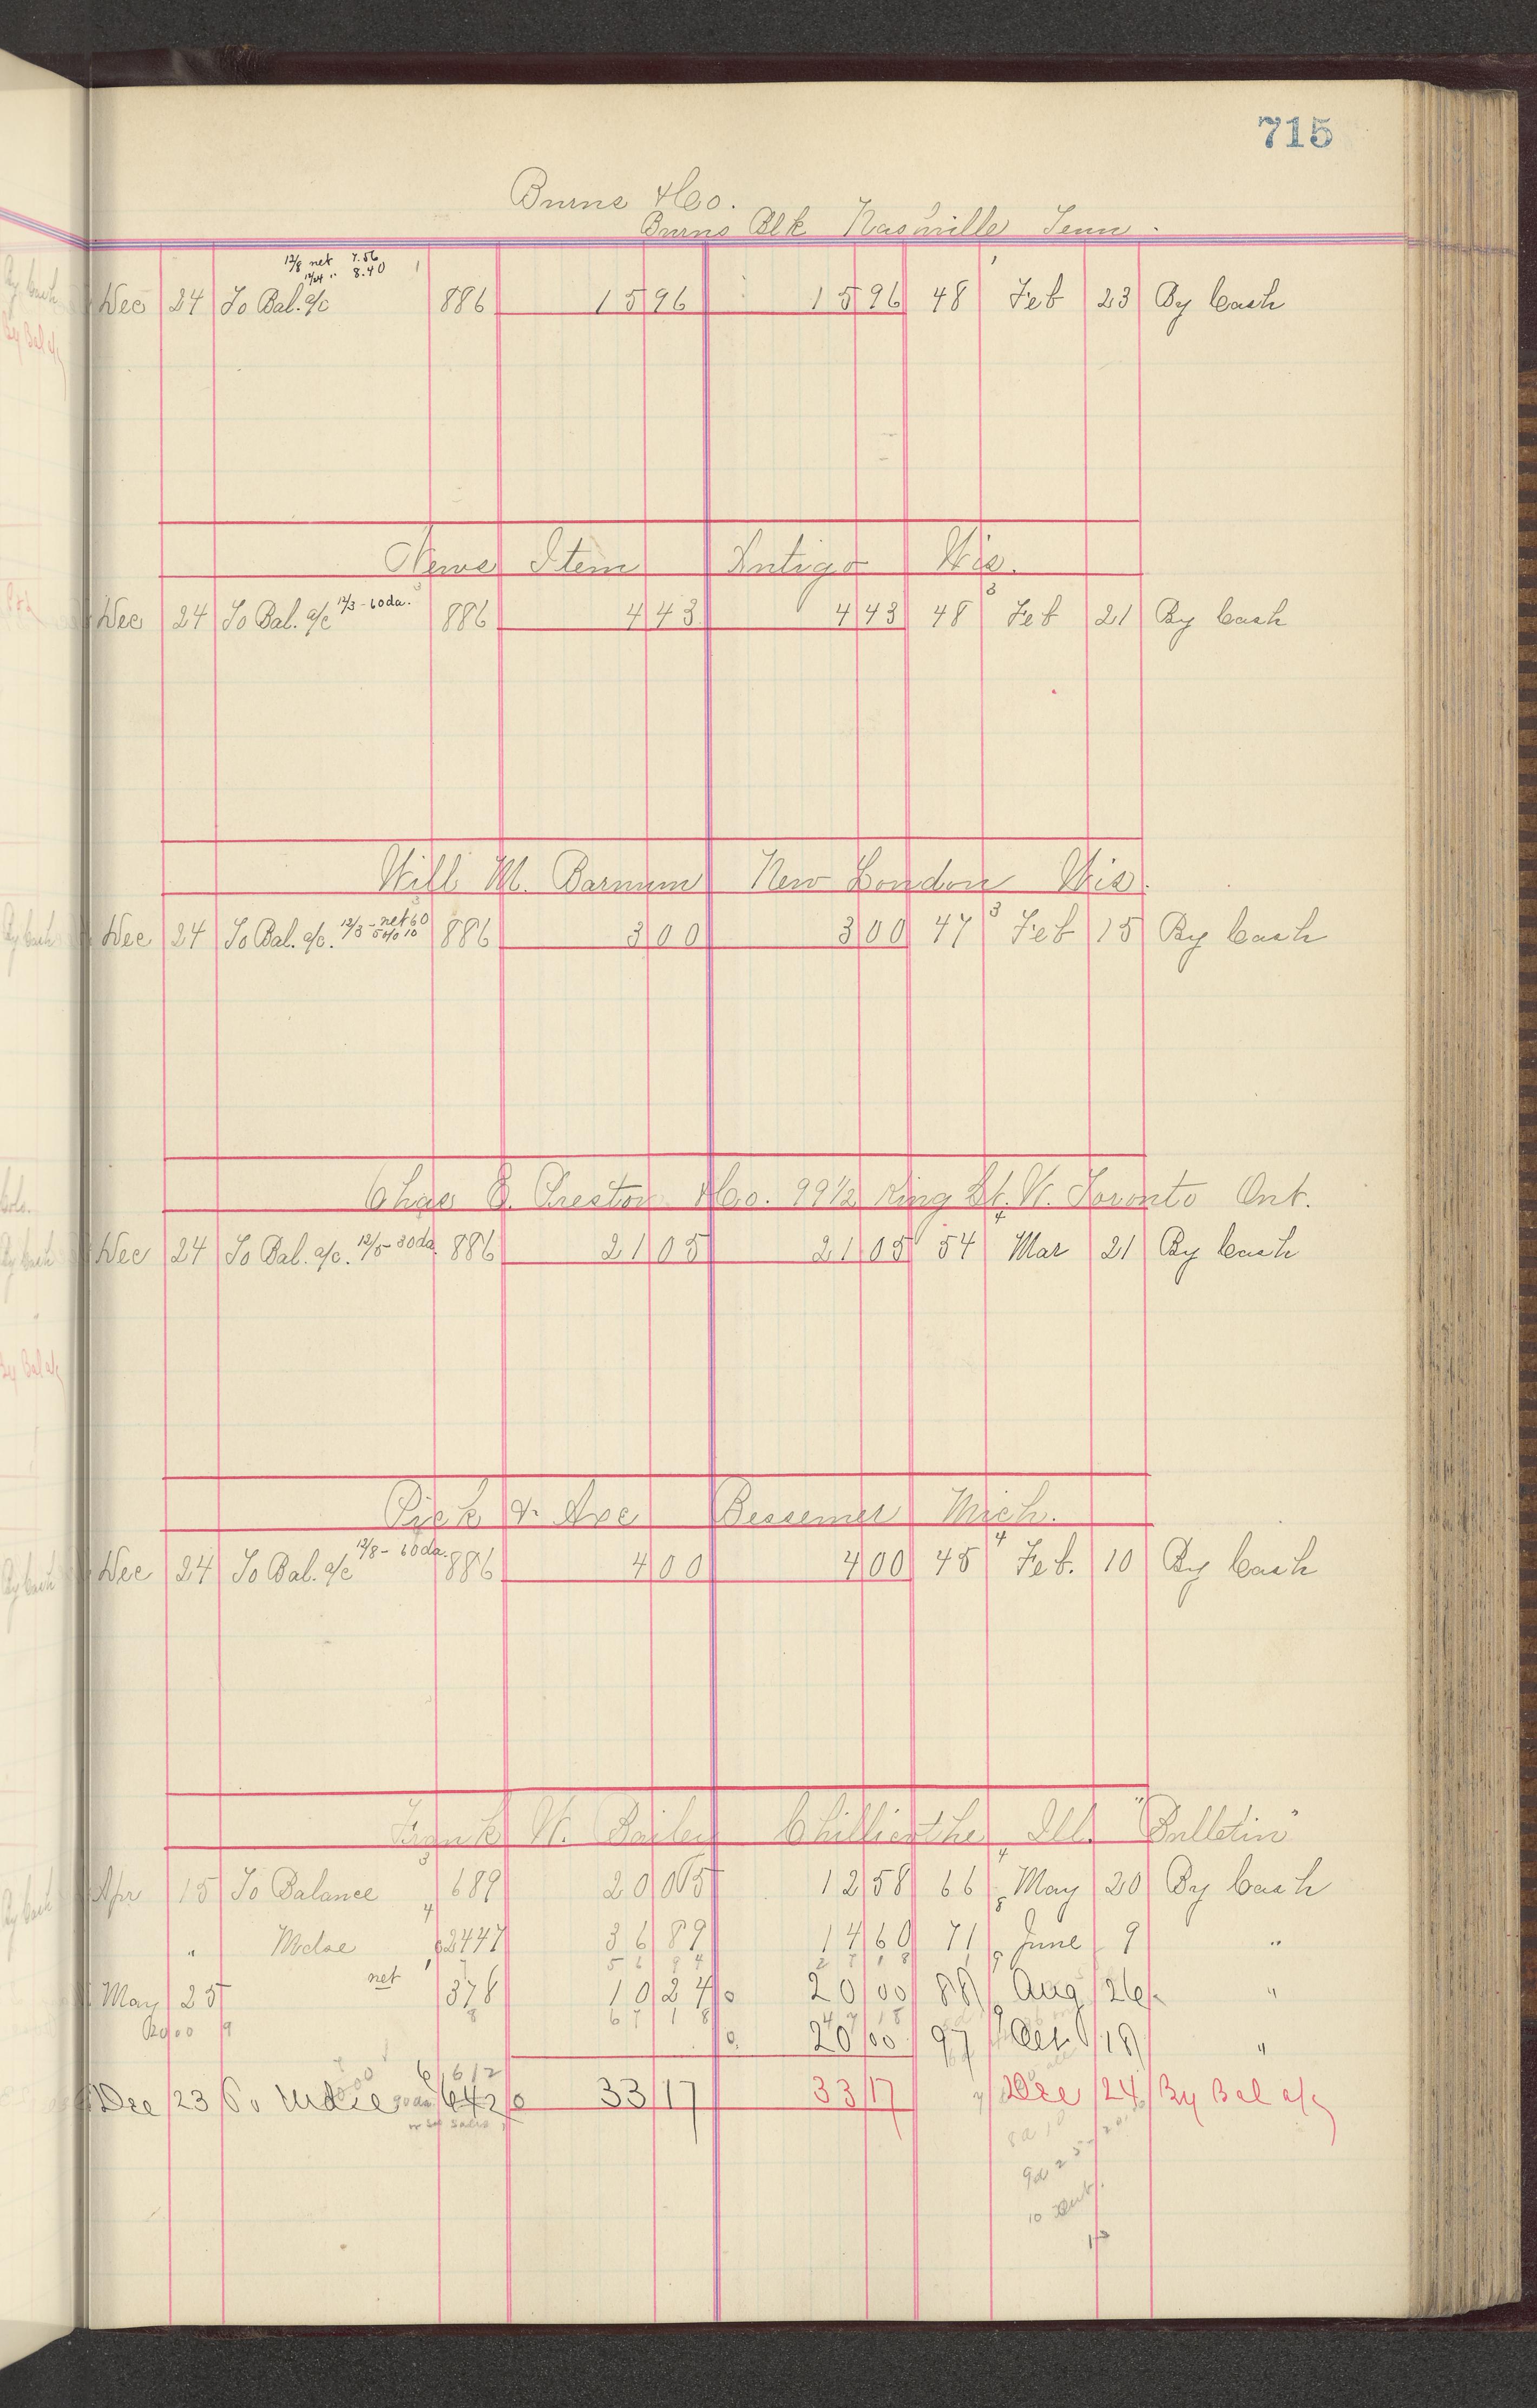 715
Burns & Co.
Burns Blk Nashville Tenn.
12/8 net 7.56
12/24 " 8.40
Dec 24 To Bal. a/c 886 15 96 15 96 48 Feb 23 By Cash
News Item Antigo Wis.
Dec 24 To Bal. a/c 12/3 - 60 da. 886 4 43 4 43 48 Feb 21 By Cash
Will M. Barnum New London Wis.
Dec 24 To Bal. a/c. 12/3 - net 60 5% 10 886 3 00 3 00 47 Feb 15 By Cash
Chas Preston & Co. 99 1/2 King St. W. Toronto Ont.
Dec 24 To Bal. a/c. 12/5 - 30 da. 886 21 05 21 05 54 Mar 21 By Cash
Pick & Axe Bessemer Mich.
Dec 24 To Bal. a/c 12/8 - 60 da. 886 4 00 4 00 45 Feb. 10 By Cash
Frank W. Bailey Chillicothe Ill. "Bulletin"
Apr 15 To Balance 689 20 05 12 58 66 May 20 By Cash
" Mdse 2447 36 89 14 60 71 June 9 "
56 94 27 18
May 25 net 378 10 24 20 00 88 Aug 26 "
67 18 47 18
20 00 97 Oct 19 "
6612
Dec 23 To Mdse 642 33 17 33 17 Dec 24 By Bal a/c